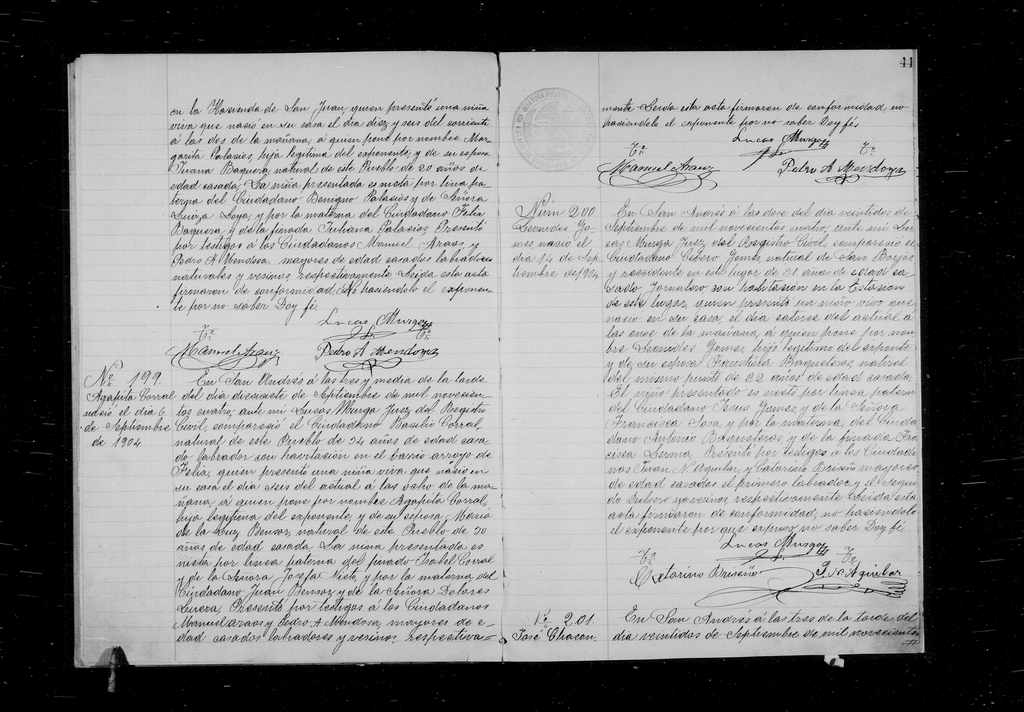 en la Hasienda de San Juan quien presentó una niña
viva que nasió en su casa el dia diez y seis del corriente
á las dos de la mañana, á quien pone por nombre Mar
garita Palasios, hija legitima del exponente, y de su esposa
Juana Baquera, natural de este Pueblo de 20 años de
edad casada, La niña presentada es nieta por linea pa
terna del Ciudadano Benigno Palasios y de Señora
Luiza Loya, y por la materna del Ciudadano Felix
Baquera, y de la finada Juliana Palasios, Presentó
por testigos á los Ciudadanos Manuel Araus y
Pedro A. Mendosa, mayores de edad casados labradores
naturales y vesinos respectivamente Leida esta acta
firmaron de conformidad, No haciendolo el exponen
te por no saber Doy fé
Lucas Murga
Tº Tº
Manuel Arauz Pedro A Mendoza
Nº 199.
Agapita Corral
nasió el dia 6
de Septiembre
de 1904
En San Andrés á las tres y media de la tarde
del dia diecisiete de Septiembre de mil novesien
tos cuatro, ante mi Lucas Murga Juez del Registro
Civil, comparesió el Ciudadano Basilio Corral,
natural de este Pueblo de 34 años de edad casa
do labrador con havitasión en el barrio arroyo de
Felix, quien presentó una niña viva que nasió en
su casa el dia seis del actual á las ocho de la ma
ñana, á quien pone por nombre Agapita Corral,
hija legitima del exponente, y de su esposa Maria
de la Luz Bensor, natural de este Pueblo de 30
años de edad casada La niña presentada es
nieta por linea paterna del finado Isabel Corral
y de la Señora Josefa Nieto, y por la materna del
Ciudadano Juan Bensor y de la Señora Dolores
Lucero, Presentó por testigos á los Ciudadanos
Manuel Araus y Pedro A Mendosa, mayores de e-
dad casados labradores y vesinos respectiva=
11
mente Leida esta acta firmaron de conformidad, no
haciendolo el exponente por no saber Doy fé
Lucas Murga
Tº Tº
Manuel Arauz Pedro A Mendoza
Núm 200
Leonides Go
mes nasió el
dia 14 de Sep
tiembre de 1904
En San Andrés á las doce del dia veintidos de
Septiembre de mil novesientos cuatro, ante mi Lu
cas Murga Juez del Registro Civil, comparesió el
Ciudadano Cesero Gomez natural de San Borja
y residente en este lugar de 31 años de edad ca
sado Jornalero con habitasión en la Estasion
de este lugar, quien presentó un niño vivo que
nasió en su casa el dia catorce del actual á
las once de la mañana, á quien pone por nom
bre Leonides Gomez hijo legitimo del exponente
y de su esposa Bauteliza Baquetera, natural
del mismo punto de 22 años de edad casada
El niño presentado es nieto por linea patern
del Ciudadano Jesus Gomez, y de la Señora
Francisca Sosa y por la materna del Ciuda
dano Antonio Baquetera, y de la finada Fra
cisca Lerma, Presentó por testigos á los Ciudada
nos Juan N. Aguilar, y Catarino Briseño mayores
de edad casados el primero labrador y el segun
do y vesinos respectivamente Leida esta
acta firmaron de conformidad, no hasiendolo
el exponente por que expuso no saber Doy fé
Lucas Murga
Tº Tº
Catarino Briseño J. N. Aguilar
Nº 201
José Chacon
En San Andrés á las tres de la tarde del
dia veintidos de Septiembre de mil novecientos